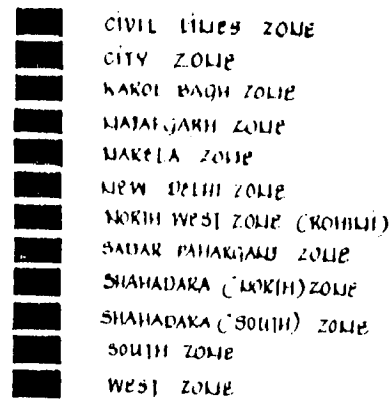 CIVIL LINES ZONE
CITY ZONE
KAROL BAGH ZONE
NAJAFGARH ZONE
NARELA ZONE
NEW DELHI ZONE
NORTH WEST ZONE (ROHINI)
SADAR PAHARGANJ ZONE
SHAHADARA (NORTH) ZONE
SHAHADARA (SOUTH) ZONE
SOUTH ZONE
WEST ZONE